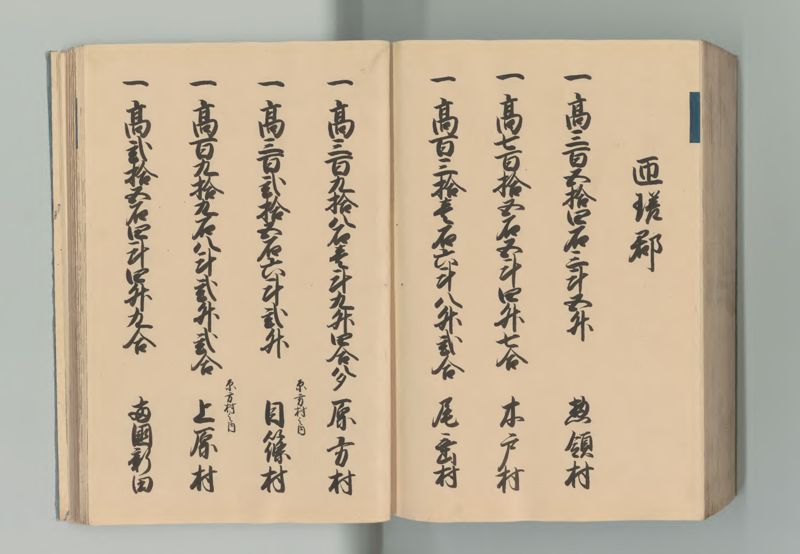 匝瑳郡
一高三百五拾四石三斗五升 惣領村
一高七百拾五石五斗四升七合 木戸村
一高百三拾壱石六斗八升弐合 尾垂村
一高三百九拾八石壱斗九升四合八夕 原方村
原方村之内
一高三百弐拾五石六斗弐升 目篠村
原方村之内
一高百九拾九石八斗弐升弐合 上原村
一高弐拾五石四斗四升九合 両国新田